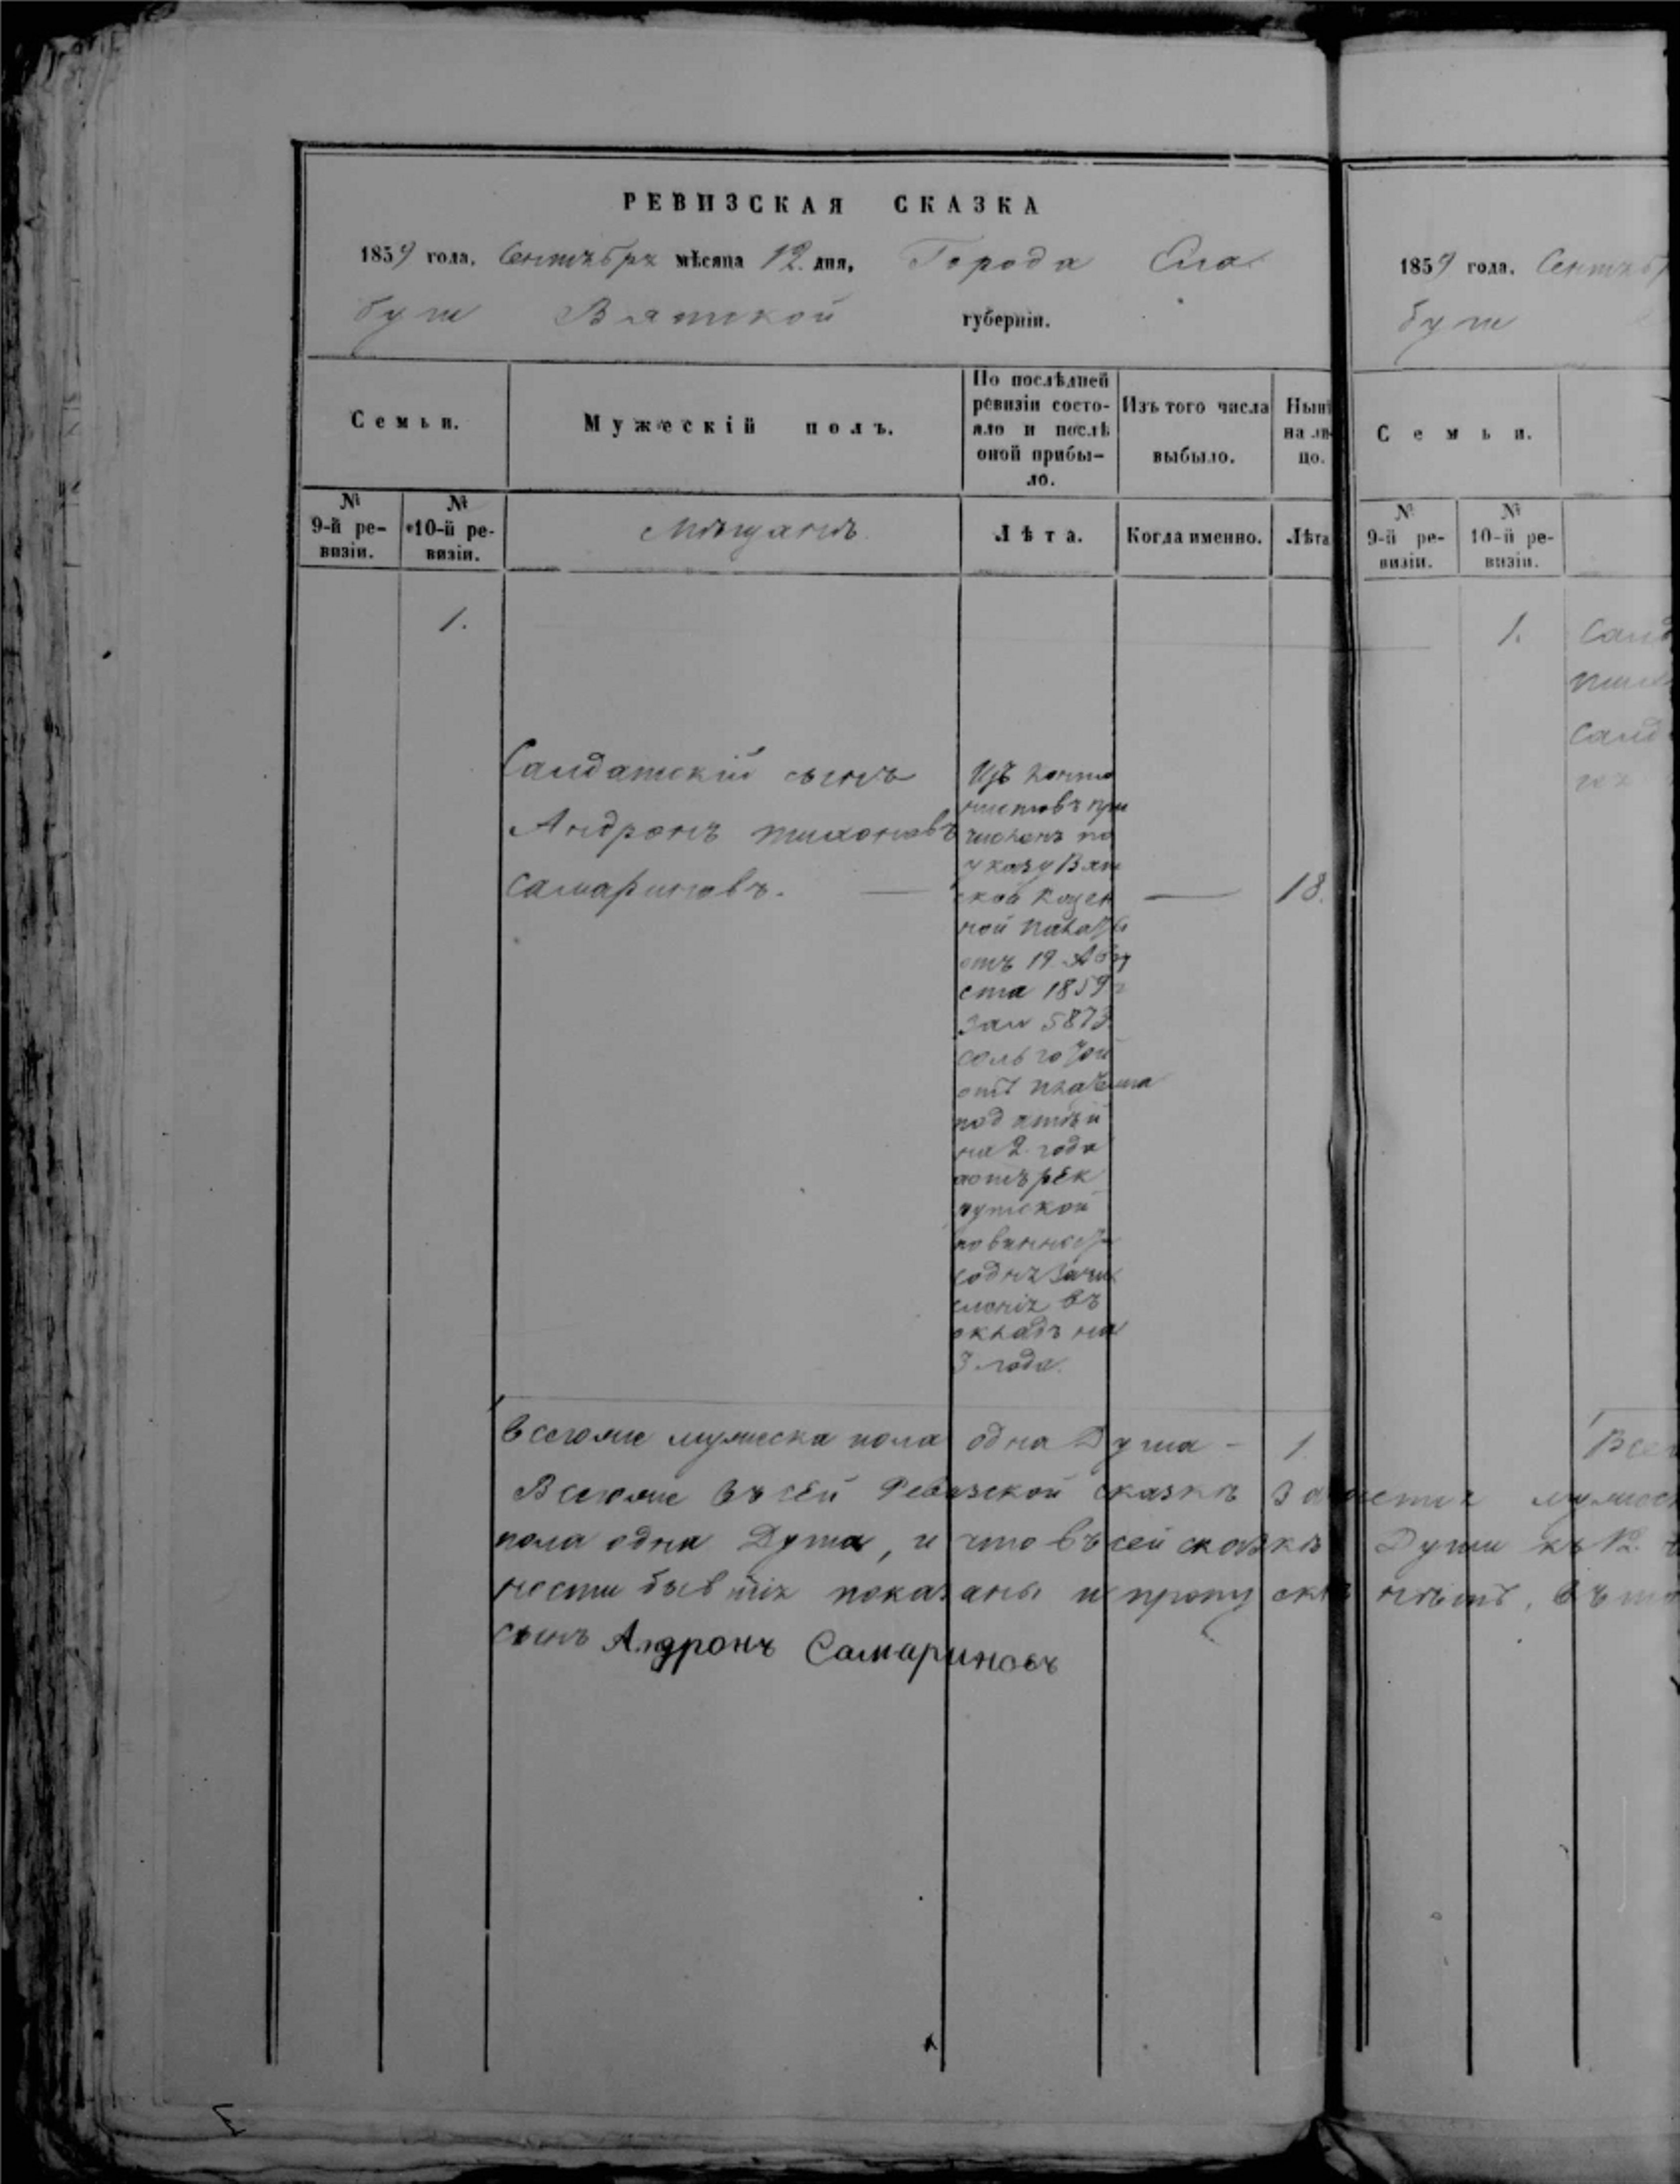 РЕВИЗСКАЯ СКАЗКА
1859 года, Сентября мѣсяца 12. дня, Города Ела
буги Вятской губерніи.
Семьи.
Мужескій полъ.
По послѣдней ревизіи состо-
яло и послѣ
оной прибы-
ло.
Изъ того числа
выбыло.
Нынѣ
на ли-
цо.
№
9-й ре-
визіи.
№
10-й ре-
визіи.
Мѣщанъ.
Лѣта.
Когда именно.
Лѣта
1.
Салдатскій сынъ
Андронъ тихоновъ
Самариновъ.
Изъ Канто
нистовъ при
численъ по
указу Вят
ской Казен
ной Палаты
отъ 19 Авгу
ста 1859 г
за № 5873
сольготой
отъ платежа
податѣй
на 2. года
аотъ рек
рутской
повинности
содня зачи
сленія въ
окладъ на
3 года.
18.
Всегоже мужеска пола одна Душа - 1.
Всегоже въ сей Ревизской сказкѣ
пола одна Душа, и что въ сей сказкѣ Души къ 12
ности бывшіх показаны и пропуска нѣтъ, въ
сынъ Андронъ Самариновъ
1859 года. Сентяб
буги
Семьи.
№
9-й ре-
визіи.
№
10-й ре-
визіи.
1. Салд
Салд
Всег